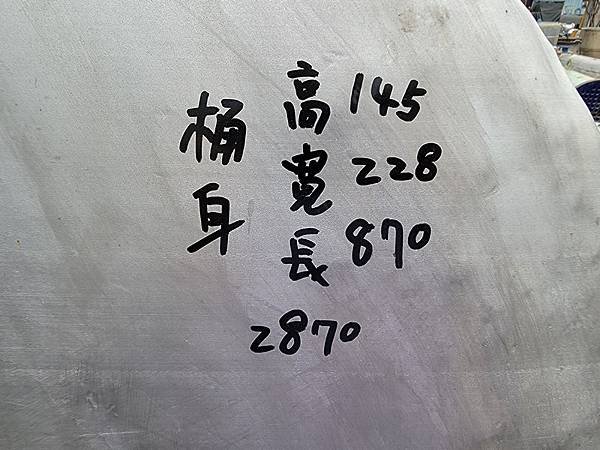 桶身
高145
寬228
長870
2870